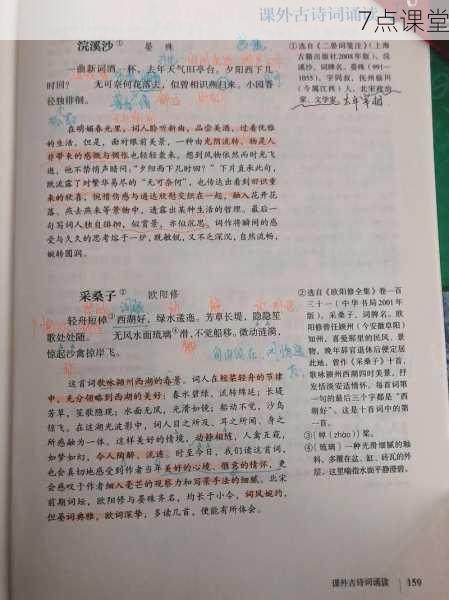 课外古诗词诵读
7点课堂
浣溪沙① 晏殊
一曲新词酒一杯，去年天气旧亭台。夕阳西下几
时回？ 无可奈何花落去，似曾相识燕归来。小园香
径独徘徊。
在明媚春光里，词人聆听新曲，品尝美酒，过着优雅
的生活。但是，面对眼前美景，一种由光阴流转、物是人
非带来的感慨与惆怅也轻轻袭来。想到风物依然而时光飞
逝，他不禁悄声暗问：“夕阳西下几时回？”下片直承此句，
既流露了对繁华易尽的“无可奈何”，也传达出看到似识重
来的欣喜，惋惜伤感与通达欣慰交织在一起，融入花开花
落、燕去燕来等景物中，透露出某种生活的哲理。最后一
句写词人独自徘徊，似赏景，亦似沉思。词作将瞬间的感
受与久久的思考熔于一炉，既敏锐，又不乏深沉，自然流畅，
婉转圆润。
①选自《二晏词笺注》（上海
古籍出版社2008年版）。浣
溪沙，词牌名。晏殊（991—
1055），字同叔，抚州临川
（今属江西）人，北宋政治
家、文学家。太平宰相
采桑子② 欧阳修
轻舟短棹③西湖好，绿水逶迤。芳草长堤，隐隐笙
歌处处随。 无风水面琉璃④滑，不觉船移。微动涟漪，
惊起沙禽掠岸飞。
这首词歌咏颍州西湖的春景。词人在短桨轻舟的节律
中，充分领略到西湖的美好：春水碧绿，流转绵延；长堤
芳草，笙歌隐现；水面无风，光滑如镜；船动不觉，沙鸟
惊飞。在这湖光波影中，词人目之所及、耳之所闻、身之
所感融为一体。这样美好的情境，动静相随，人禽互窥，
如梦如幻，令人陶醉、流连。时至今日，我们读这首词，
也会真切地感受到作者当年美好的心境、惬意的情怀，更
会感叹于作者细入毫芒的观察力和写景手法的细腻。北宋
前期词坛，欧阳修与晏殊齐名，均长于小令，词风婉约，
但晏词典雅，欧词深挚，多读几首，便能有所体会。
②选自《欧阳修全集》卷一百
三十一（中华书局2001年
版）。采桑子，词牌名。欧
阳修曾任颍州（今安徽阜阳）
知州，喜爱那里的民风、景
物，晚年辞官退休后便定居
此地。曾作《采桑子》十首，
歌咏颍州西湖四时美景，抒
发恬淡安适情怀。每首词第
一句的最后三个字都是“西
湖好”。这是十首词中的第
一首。
③〔棹（zhào）〕桨。
④〔琉璃〕一种光滑细腻的釉
料，多覆在盆、缸、砖瓦的外
层。这里喻指水面平静澄碧。
课外古诗词诵读 159